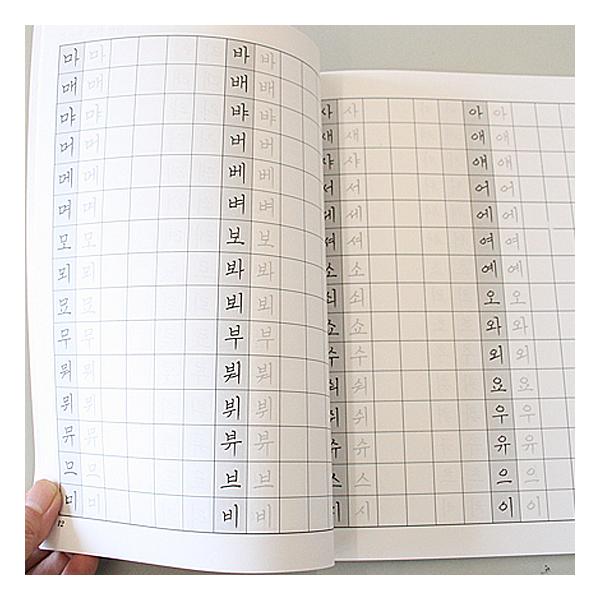 마 마 바 바
매 매 배 배
먀 먀 뱌 뱌
머 머 버 버
메 메 베 베
며 며 벼 벼
모 모 보 보
뫼 뫼 봐 봐
묘 묘 뵈 뵈
무 무 부 부
뭐 뭐 붜 붜
뮈 뮈 뷔 뷔
뮤 뮤 뷰 뷰
므 므 브 브
미 미 비 비
12
사 사 아 아
새 새 애 애
샤 샤 얘 얘
서 서 어 어
세 세 에 에
셔 셔 여 여
소 소 예 예
쇠 쇠 오 오
쇼 쇼 와 와
수 수 외 외
숴 숴 요 요
쉬 쉬 우 우
슈 슈 유 유
스 스 으 으
시 시 이 이